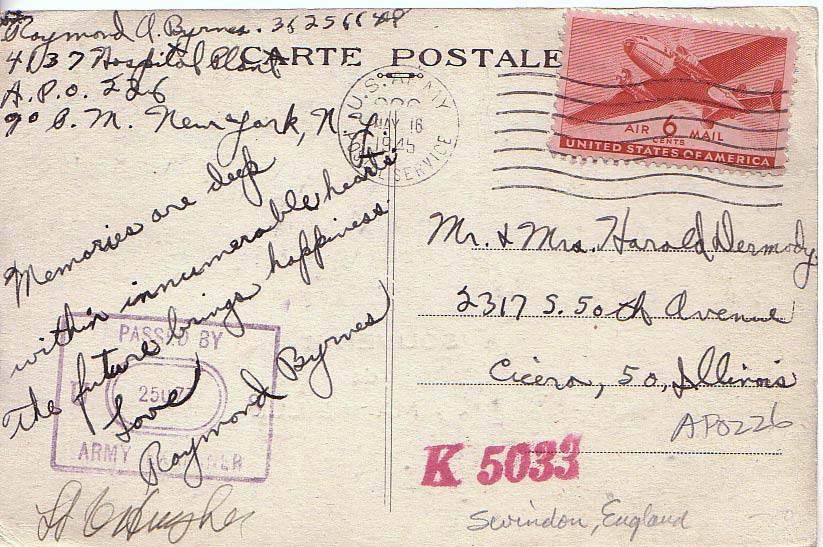 Raymond A. Byrnes. 36256648
4137 Hospital Plant
A.P.O. 226
% P.M. New York, N.Y.
CARTE POSTALE
U.S. ARMY
MAY 16
1945
POSTAL SERVICE
AIR 6 MAIL
CENTS
UNITED STATES OF AMERICA
Memories are deep
within innumerable hearts
The future brings happiness.
Love
Raymond Byrnes
PASSED BY
ARMY EXAMINER
Lt C Hughes
Mr. & Mrs. Harold Dermody.
2317 S. 50th Avenue
Cicero, 50, Illinois
APO226
K 5033
Swindon, England